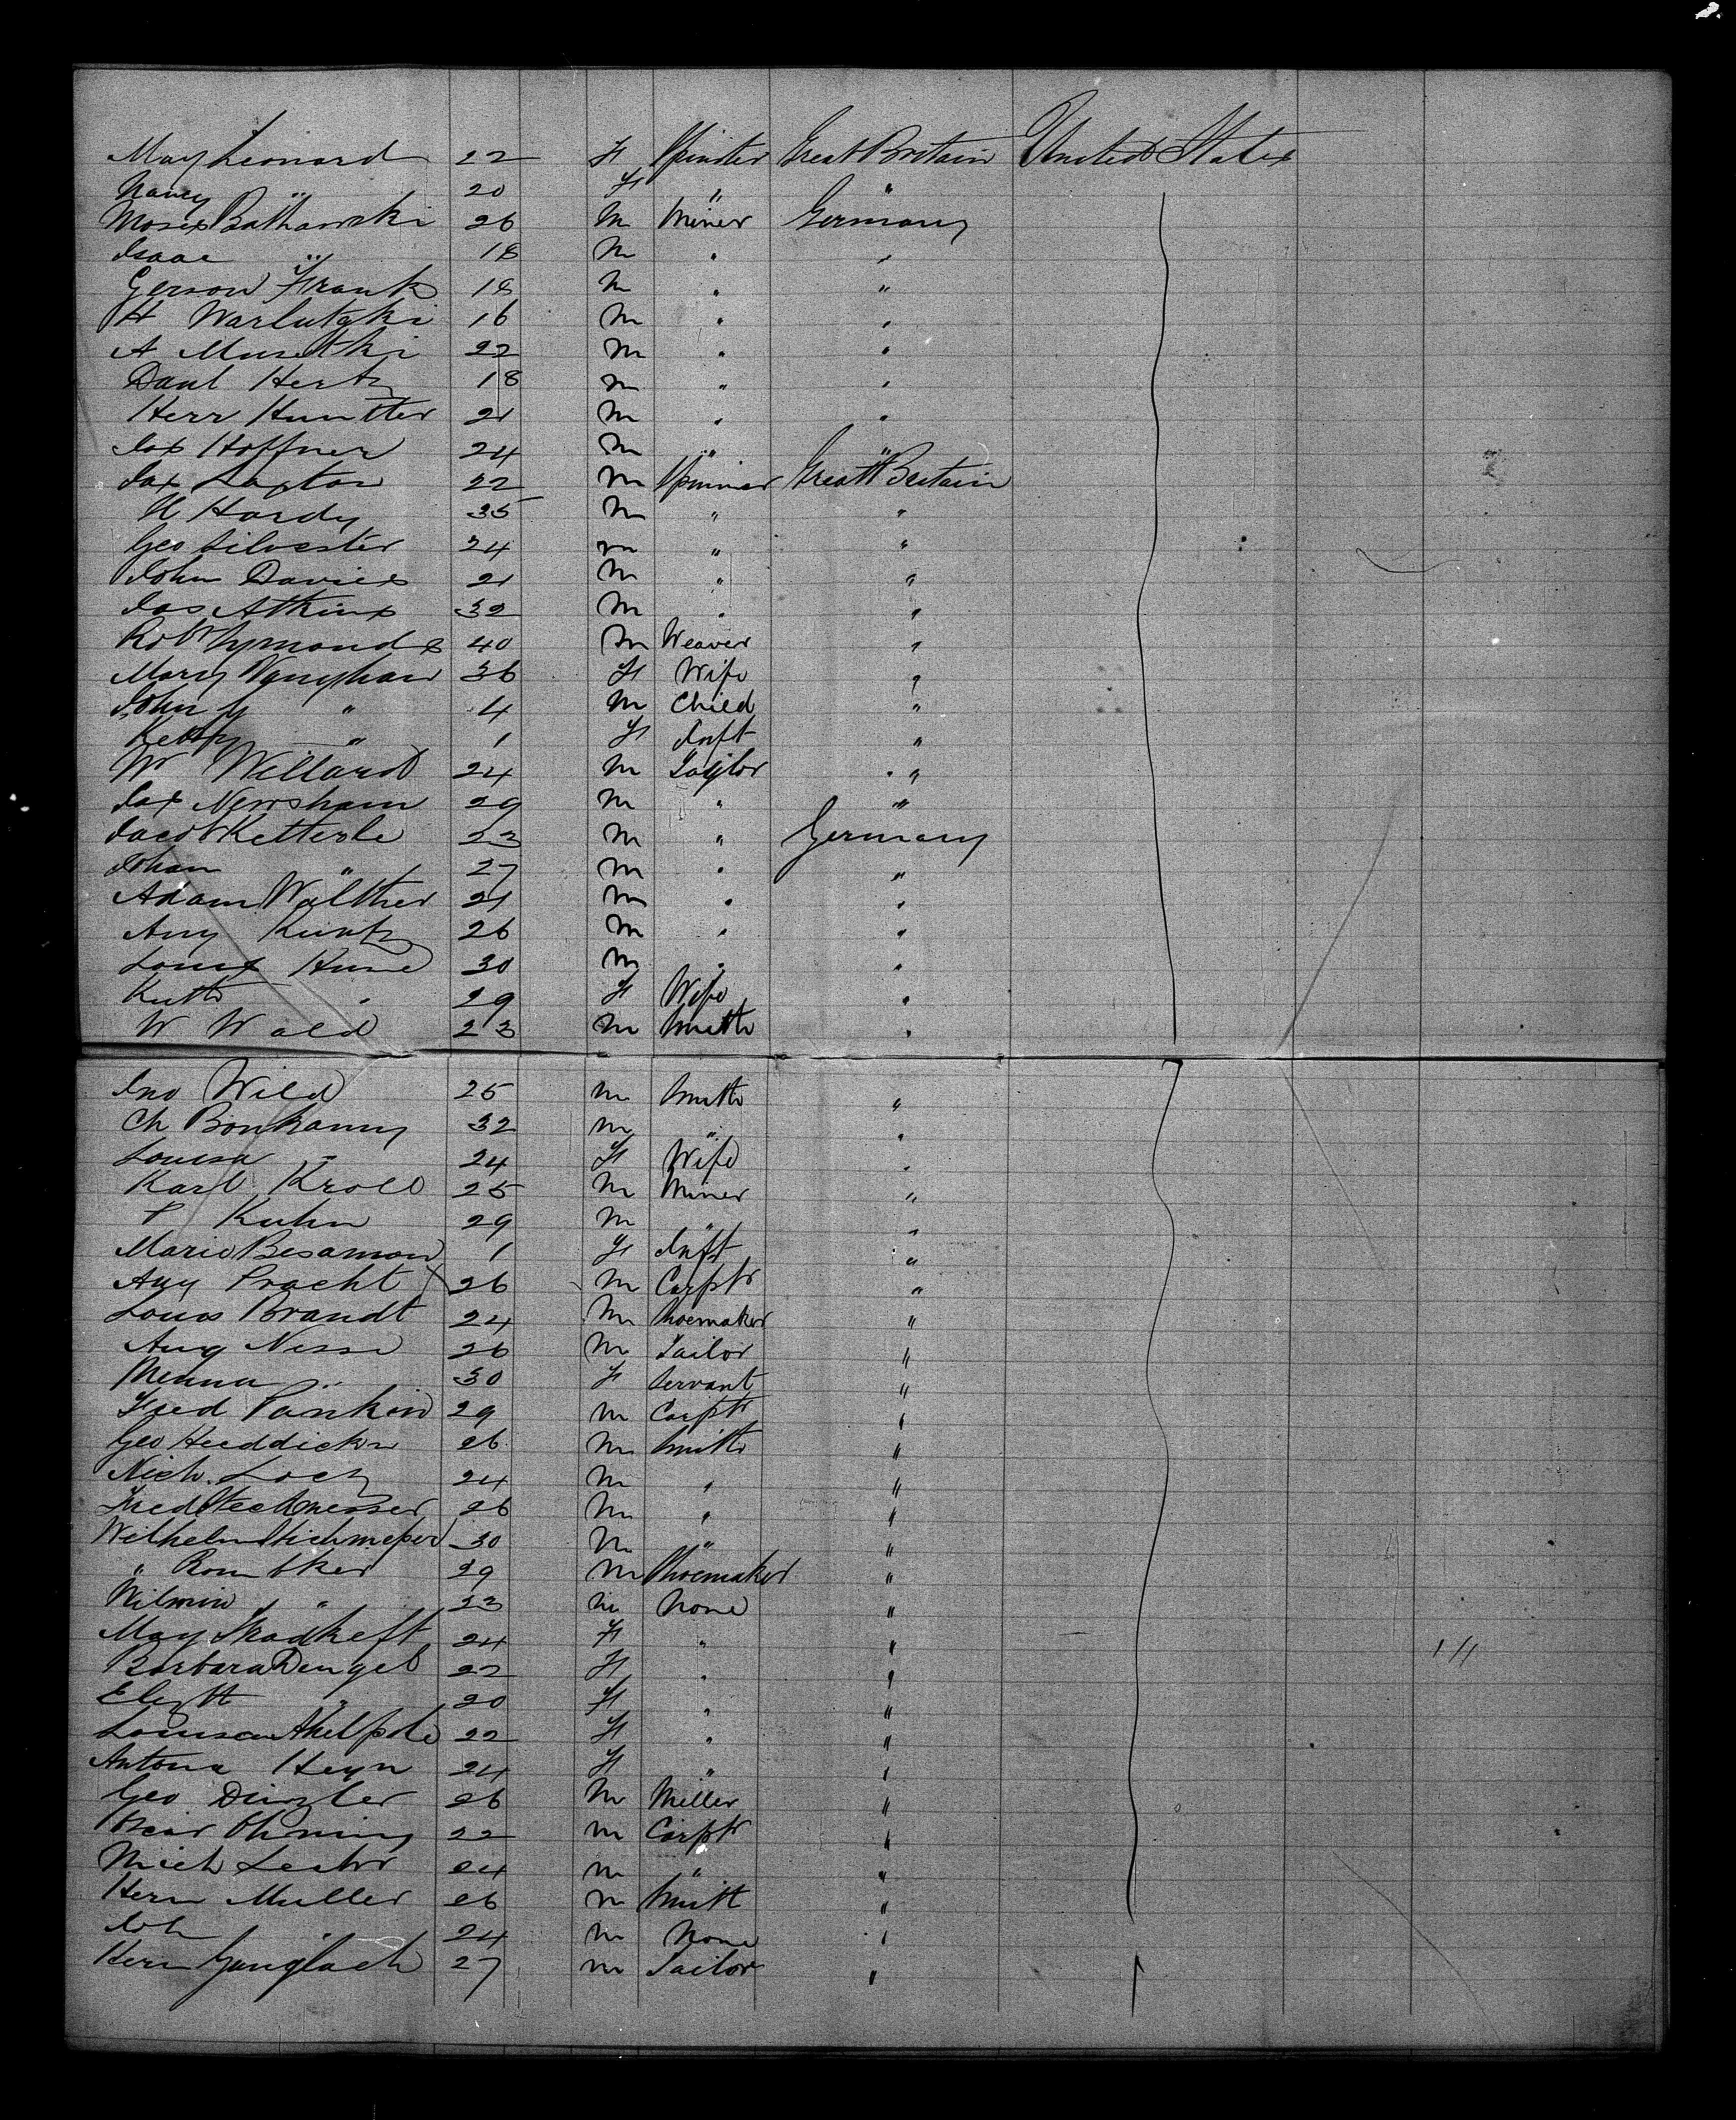 May Leonard 22 F Spinster Great Britain United States
Nancy " 20 F " "
Moses Bathawski 26 M Miner Germany
Isaac " 18 M " "
Gerson Frank 18 M " "
H Warlutzki 16 M " "
A Musethki 22 M " "
Danl Hertz 18 M " "
Herr Huntter 21 M " "
Jas Hoffner 24 M " "
Jas Laxton 22 M Spinner Great Britain
H Hardy 35 M " "
Geo Silvester 24 M " "
John Davies 21 M " "
Jas Atkins 32 M " "
Robt Symonds 40 M Weaver "
Mary Vaughan 36 F Wife "
John G " 4 M Child "
Ketty " 1 F Inft "
Wm Willard 24 M Taylor "
Jas Newsham 29 M " "
Jacob Ketterle 23 M " Germany
Johan " 27 M " "
Adam Walther 21 M " "
Aug Kuntz 26 M " "
Louis Hune 30 M " "
Kath " 29 F Wife "
W Wald 23 M Smith "
Jno Wild 25 M Smith "
Ch Bonkamy 32 M " "
Louisa " 24 F Wife "
Karl Kroll 25 M Miner "
P Kuhn 29 M " "
Marie Besamon 1 F Inft "
Aug Pracht X 26 M Carptr "
Louis Brandt 24 M Shoemaker "
Aug Nisse 26 M Tailor "
Menna " 30 F Servant "
Fred Pankin 29 M Carptr "
Geo Heeddickn 26 M Smith "
Nich. Loch 24 M " "
Fred Steckmesser 26 M " "
Wilhelm Stichmesser 30 M " "
" Rombker 29 M Shoemaker "
Wilmin " 23 M None "
May Shadkeft 24 F " "
Barbara Dengel 22 F " "
Elizth " 20 F " "
Louisa Akelpole 22 F " "
Antona Heyn 24 F " "
Geo Dinzler 26 M Miller "
22 M Carptr "
Mich Lechr 24 M " "
Herm Muller 26 M Smith "
Joh " 24 M None "
Herm Gunglach 27 M Tailor "